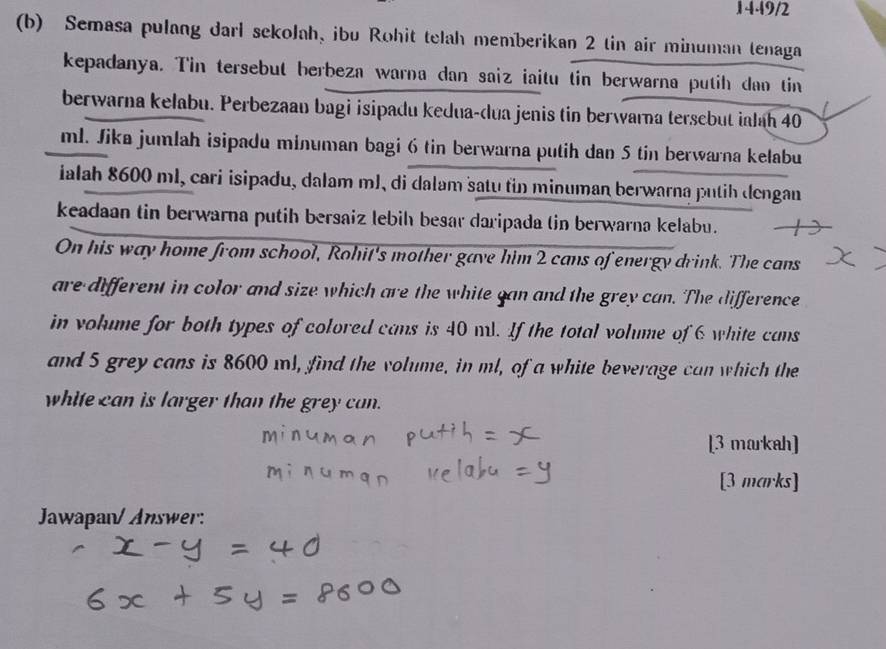 1449/2
(b) Semasa pulang dari sekolah, ibu Rohit telah memberikan 2 tin air minuman tenaga
kepadanya. Tin tersebut berbeza warna dan saiz iaitu tin berwarna putih dan tin
berwarna kelabu. Perbezaan bagi isipadu kedua-dua jenis tin berwarna tersebut ialah 40
ml. Jika jumlah isipadu minuman bagi 6 tin berwarna putih dan 5 tin berwarna kelabu
ialah 8600 ml, cari isipadu, dalam ml, di dalam satu tin minuman berwarna putih dengan
keadaan tin berwarna putih bersaiz lebih besar daripada tin berwarna kelabu.
On his way home from school, Rohit's mother gave him 2 cans of energy drink. The cans
x >
are different in color and size which are the white can and the grey can. The difference
in volume for both types of colored cans is 40 ml. If the total volume of 6 white cans
and 5 grey cans is 8600 ml, find the volume, in ml, of a white beverage can which the
white can is larger than the grey can.
minuman putih = x
[3 markah]
minuman kelabu = y
[3 marks]
Jawapan/ Answer:
x - y = 40
6x + 5y = 8600